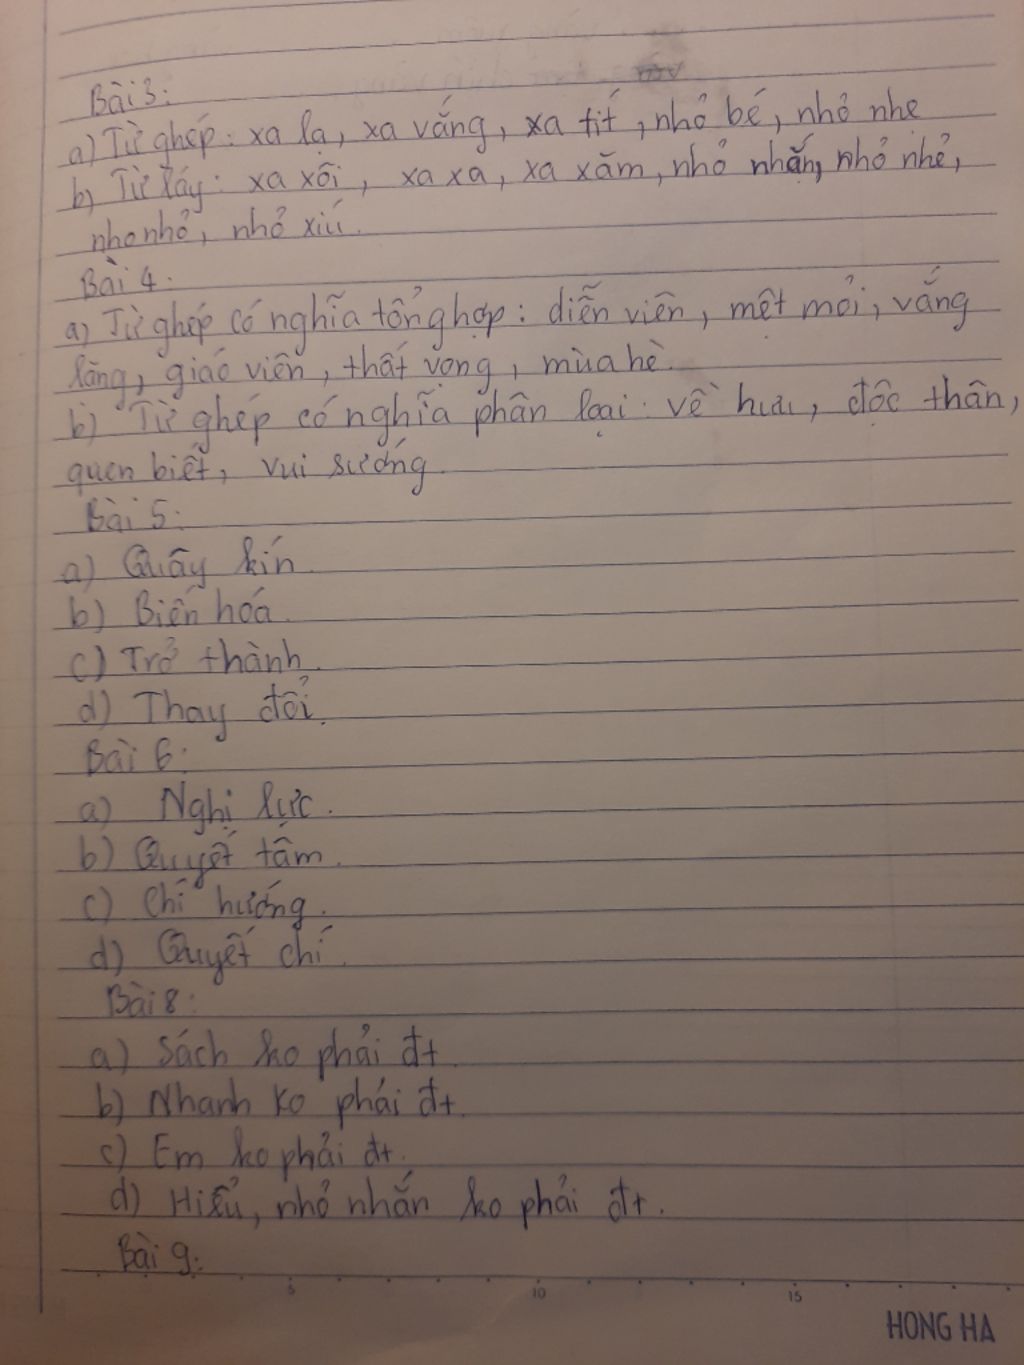 Bài 3:
a) Từ ghép: xa lạ, xa vắng, xa tít, nhỏ bé, nhỏ nhe
b) Từ láy: xa xôi, xa xa, xa xăm, nhỏ nhắn, nhỏ nhẻ,
nho nhỏ, nhỏ xíu.
Bài 4:
a) Từ ghép có nghĩa tổng hợp: diễn viên, mệt mỏi, vắng
lặng, giáo viên, thất vọng, mùa hè.
b) Từ ghép có nghĩa phân loại: về hưu, độc thân,
quen biết, vui sướng.
Bài 5:
a) Quây kín.
b) Biến hóa.
c) Trở thành.
d) Thay đổi.
Bài 6:
a) Nghị lực.
b) Quyết tâm.
c) Chí hướng.
d) Quyết chí.
Bài 8:
a) Sách ko phải đt.
b) Nhanh ko phải đt.
c) Em ko phải đt.
d) Hiểu, nhỏ nhắn ko phải đt.
Bài 9:
5 10 15
HONG HA